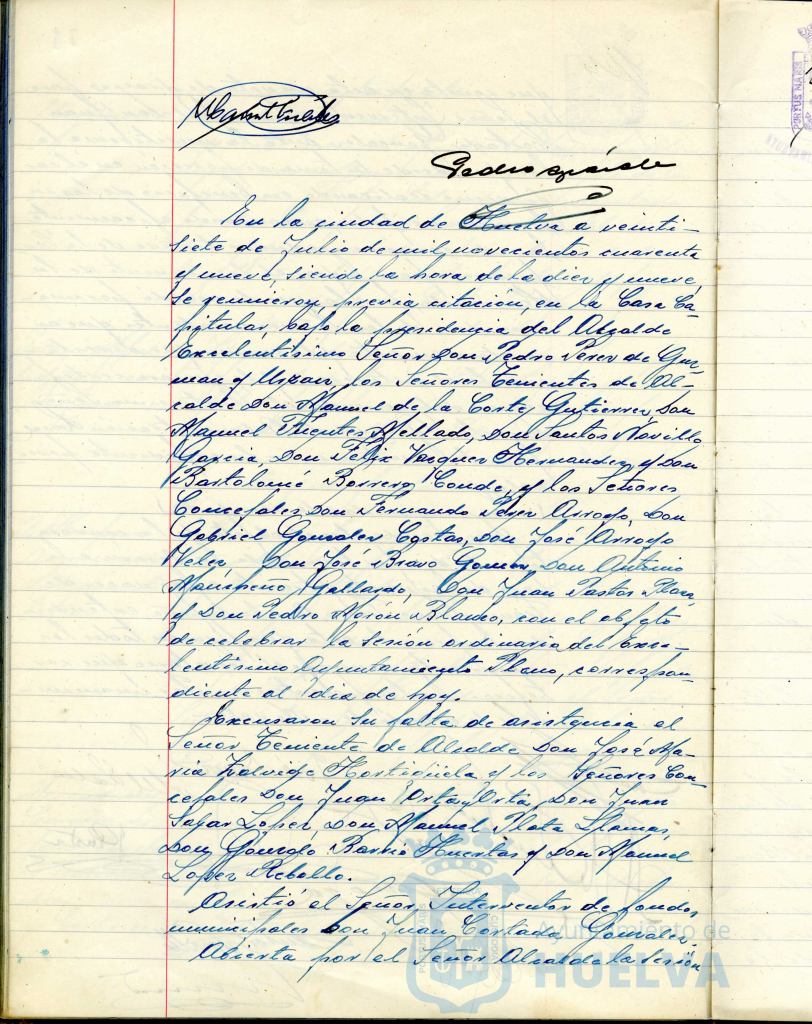 Pedro
En la ciudad de Huelva a veinti-
siete de Julio de mil novecientos cuarenta
y nueve, siendo la hora de la diez y nueve,
se reunieron, previa citación, en la Casa Ca-
pitular, bajo la presidencia del Alcalde
Excelentísimo Señor Don Pedro Perez de Guz-
man y Urzaiz, los Señores Tenientes de Al-
calde Don Manuel de la Corte Gutierrez, Don
Manuel Fuentes Mellado, Don Santos Novillo
Garcia, Don Felix Vazquez Hernandez y Don
Bartolomé Borrero Conde, y los Señores
Concejales Don Fernando Perez Arroyo, Don
Gabriel Gonzalez Costas, Don José Arroyo
Velez, Don José Bravo Gomez, Don Antonio
Gallardo, Don Juan Pastor
y Don Pedro Morón Blanco, con el objeto
de celebrar la sesión ordinaria del Exce-
lentísimo Ayuntamiento Pleno, correspon-
diente al dia de hoy.
Excusaron su falta de asistencia el
Señor Teniente de Alcalde Don José Ma-
ria Hortigüela y los Señores Con-
cejales Don Juan Orta y Orta, Don Juan
Lopez, Don Manuel Plata Llamas,
Don Gonzalo Barrio Huertas y Don Manuel
Lopez Rebollo.
Asistió el Señor Interventor de fondos
municipales Don Juan Cortada Gonzalez.
Abierta por el Señor Alcalde la sesión
Ayuntamiento de
HUELVA
PORTUS MARIS